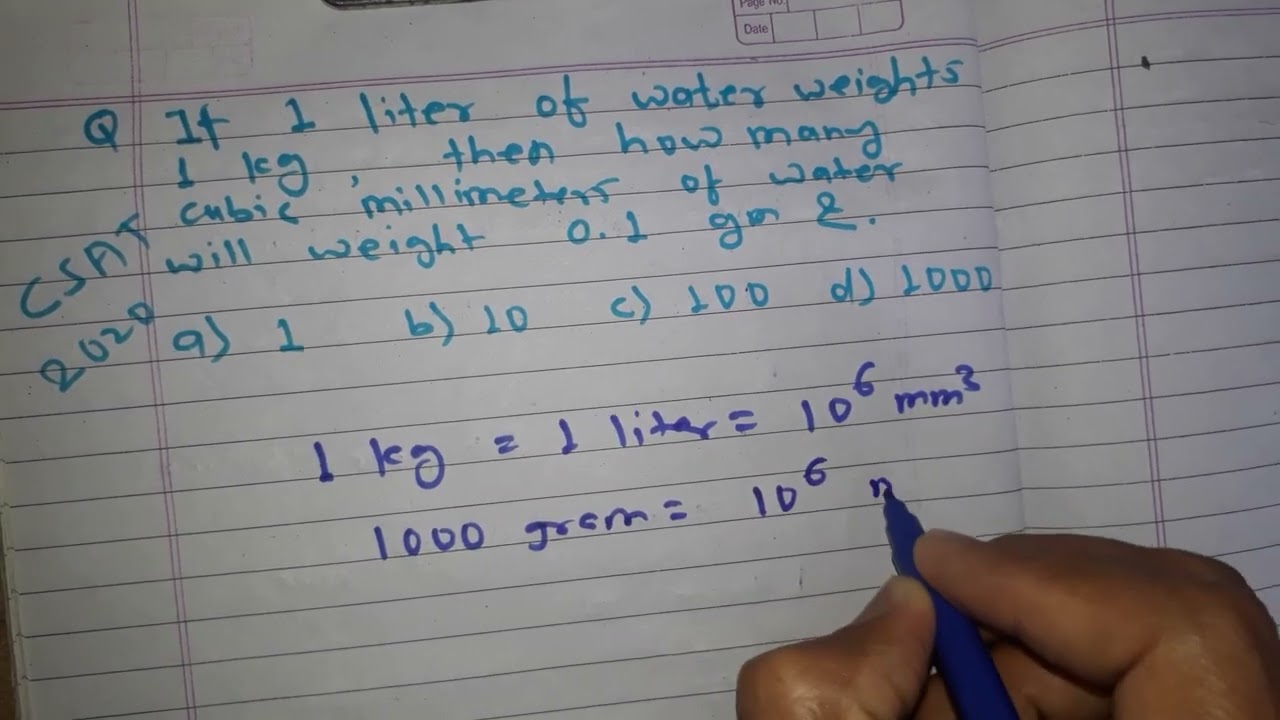 Page No.
Date
Q If 1 liter of water weights
1 kg, then how many
cubic millimeters of water
will weight 0.1 gm ?.
CSAT
2020
a) 1 b) 10 c) 100 d) 1000
1 kg = 1 liter = 10⁶ mm³
1000 gram = 10⁶ m